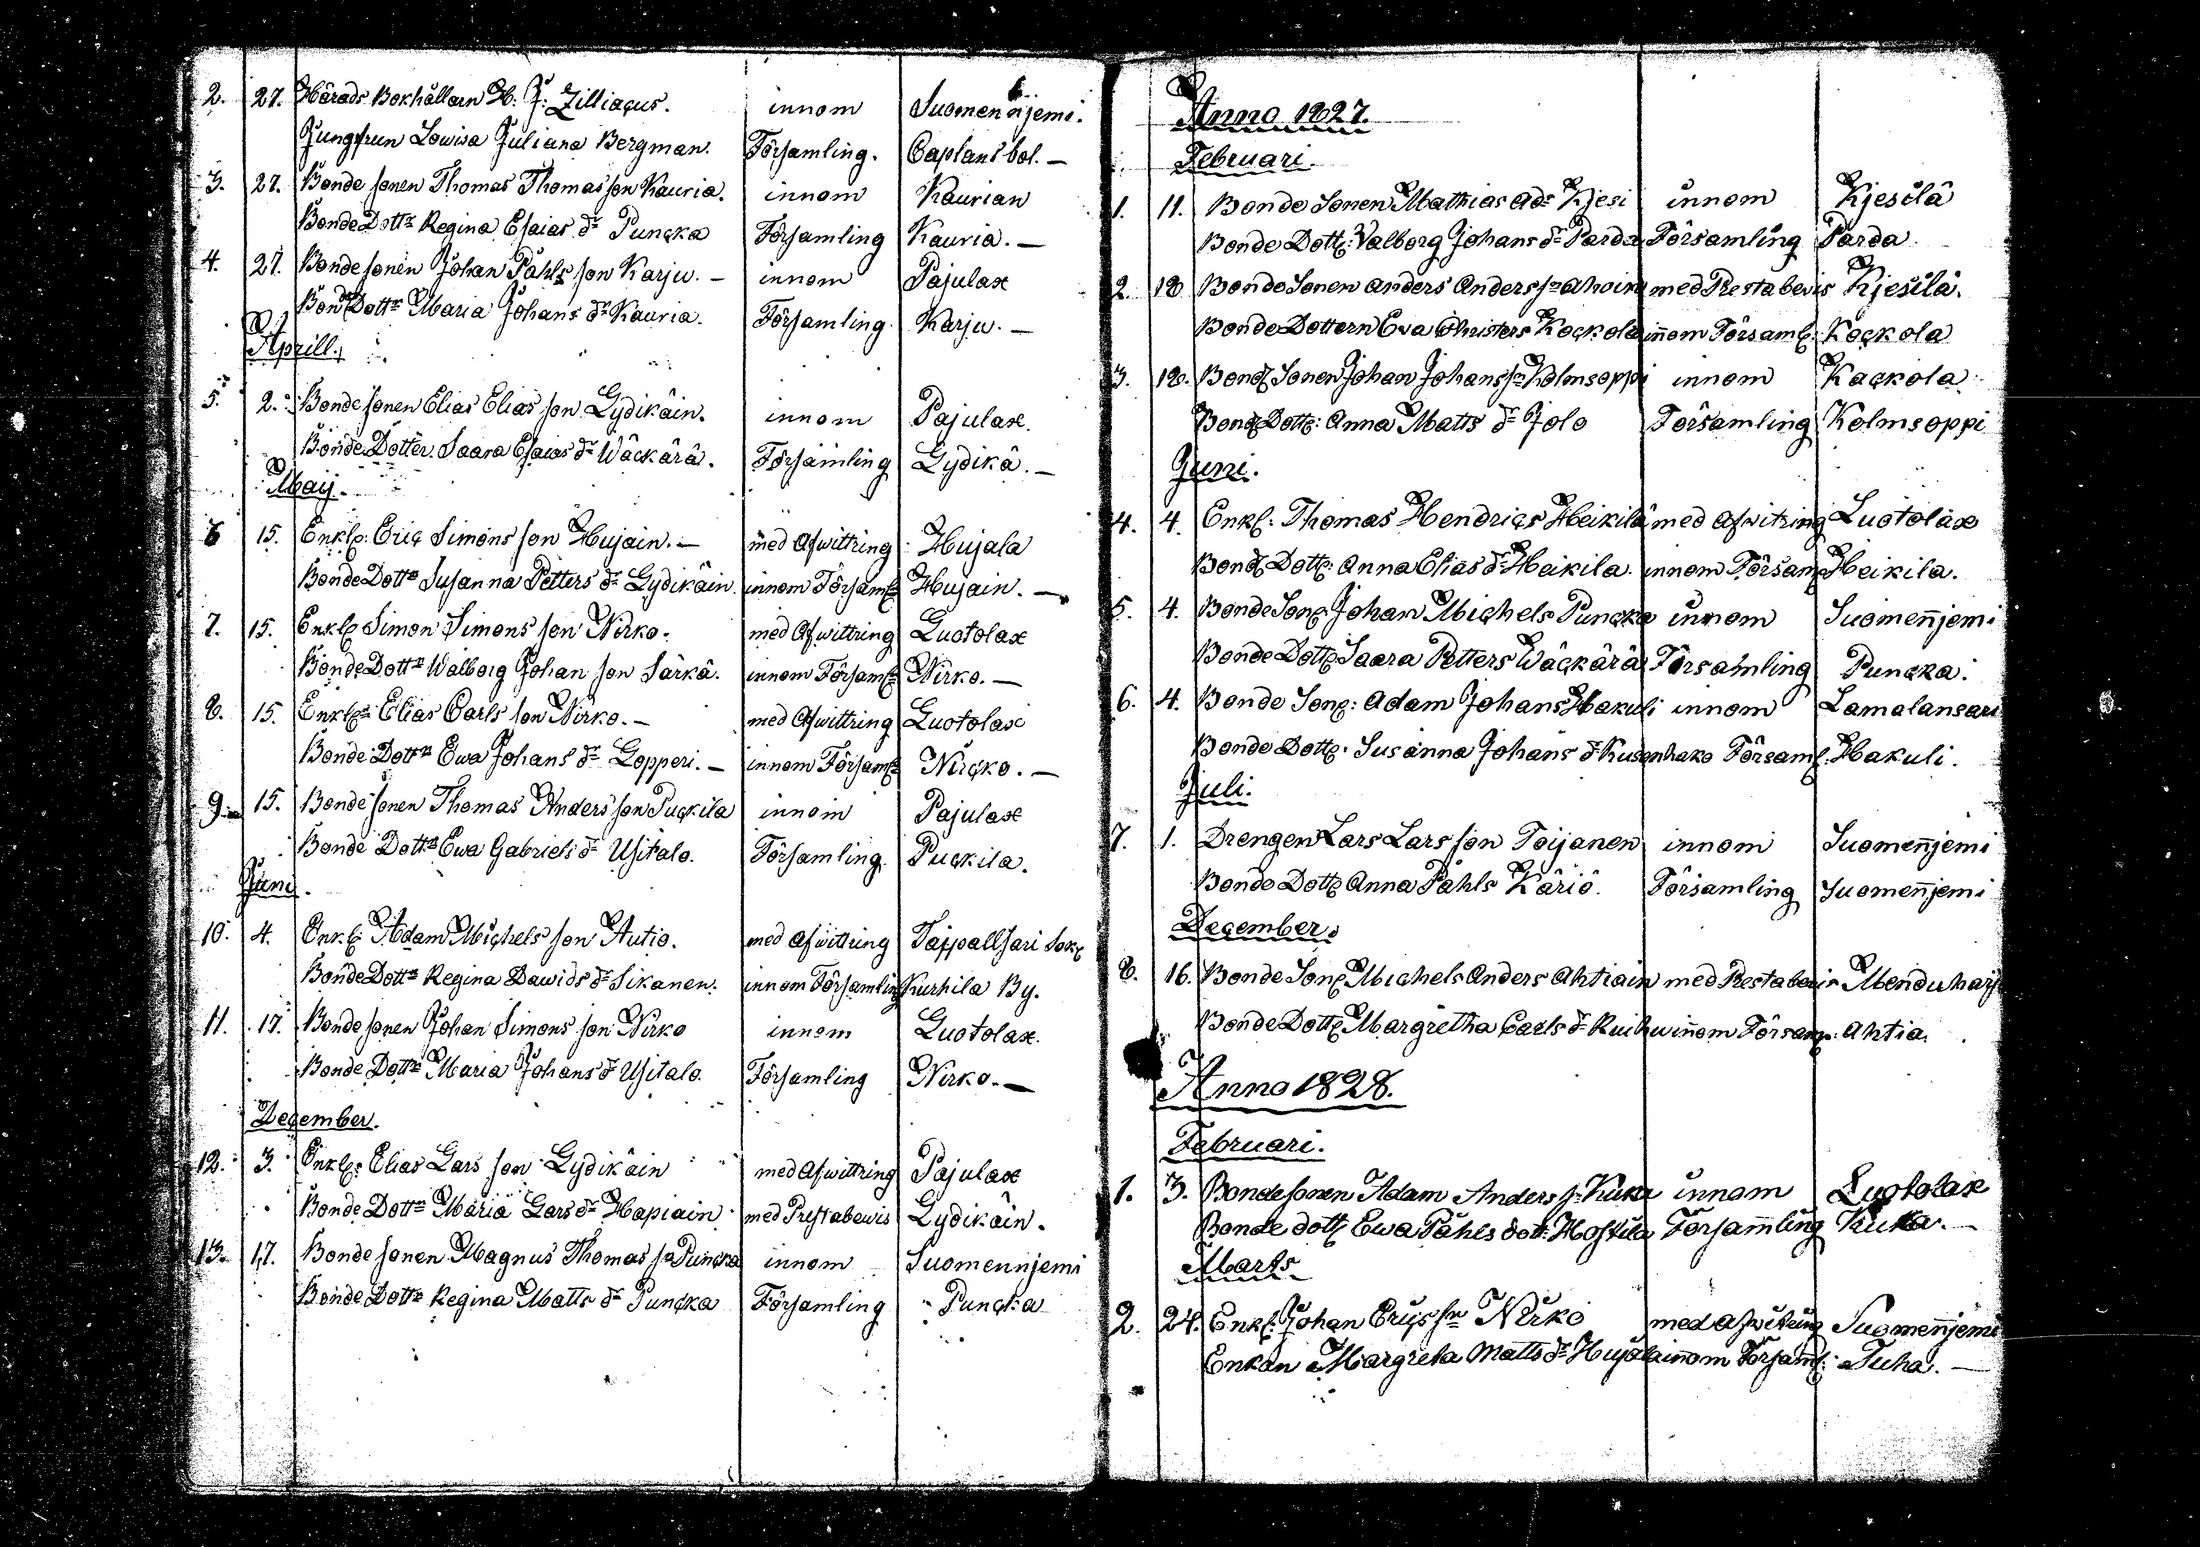 2. 27. Härads Bokhållarn H: J: Zilliacus. innom Suomennjemi.
Jungfrun Lowisa Juliana Bergman. Församling. Caplans bol. —
3. 27. Bonde sonen Thomas Thomas son Kauria. innom Kaurian
Bonde Dottr Regina Esaias dr Puncka Församling Kauria. —
4. 27. Bonde sonen Johan Påhls son Karju. — innom Pajulax
Bonde Dottr Maria Johans dr Kauria. Församling Karju. —
Aprill.
5. 2. Bonde sonen Elias Elias son Lydikäin. innom Pajulax.
Bonde Dotter Saara Esaias dr Wäckärä. Församling Lydikä. —
Maij.
6 15. Enkl: Eric Simons son Hujain. — med Afwittring Hujala
Bonde Dottr Susanna Petters dr Lydikäin. innom Församl Hujain. —
7. 15. Enkl Simon Simons son Nirko. med Afwittring Luotolax
Bonde Dottr Walborg Johan son Särkä. innom Församl Nirko. —
8. 15. Enkl: Elias Carls son Nirko. — med Afwittring Luotolax
Bonde Dottr Ewa Johans dr Lopperi. — innom Församl Nircko. —
9. 15. Bonde sonen Thomas Anders son Puckila innom Pajulax
Bonde Dottr Ewa Gabriels dr Usitalo. Församling. Puckila.
Juni.
10. 4. Enkl Adam Michels son Autio. med Afwittring Taipallsari Sokn
Bonde Dottr Regina Dawids dr Sikanen. innom Församling Kurhila By.
11. 17. Bonde sonen Johan Simons son Nirko innom Luotolax.
Bonde Dottr Maria Johans dr Usitalo. Församling Nirko. —
December.
12. 3. Enkl: Elias Lars son Lydikäin med Afwittring Pajulax
Bonde Dottr Maria Lars dr Hapiain med Prestabewis Lydikäin.
13. 17. Bonde sonen Magnus Thomas sn Puncka innom Suomennjemi
Bonde Dottr Regina Matts dr Puncka Församling Puncka
Anno 1827.
Februari.
1. 11. Bonde Sonen Mathias Ads Kjesi innom Kjesilä
Bonde Dott: Valborg Johans dr Parda Församling Parda
2. 18 Bonde Sonen Anders Anders sn Ahoin med Prestabevis Kjesilä.
Bonde Dottern Eva Christers Kockola innom Församl: Kockola
3. 18. Bond Sonen Johan Johans sn Kolmsoppi innom Kackola
Bond Dott: Anna Matts dr Jolo Församling Kolmsoppi
Juni.
4. 4. Enkl: Thomas Hendrics Heikilä med Afwitring Luotolax
Bond Dott: Anna Elias dr Heikila. innom Församl Heikila.
5. 4. Bonde Son Johan Michels Puncka innom Suomenn̄jemi
Bonde Dott Saara Petters Wäckärä Församling Puncka.
6. 4. Bonde Son: Adam Johans Hakuli innom Lamalansari
Bonde Dott: Susanna Johans dr Kusenhako Församl: Hakuli.
Juli.
7. 1. Drengen Lars Lars son Toijanen innom Suomen̄jemi
Bonde Dott Anna Påhls Käriö. Församling Suomen̄jemi
December.
8. 16. Bonde Son Michels Anders Ahtiain med Prestabevis Menduharj
Bonde Dott Margretha Carls dr innom Församl: Ahtia.
Anno 1828.
Februari.
1. 3. Bonde sonen Adam Anders sn Kuka innom Luotolax
Bonde dott Ewa Påhls dott: Hostila Församling Kuka. —
Marts
2. 24. Enkl: Johan Erics sn Nirko med Afwitring Suomen̄jemi
Enkan Margreta Matts dr Hujala innom Församl: Tuha. —